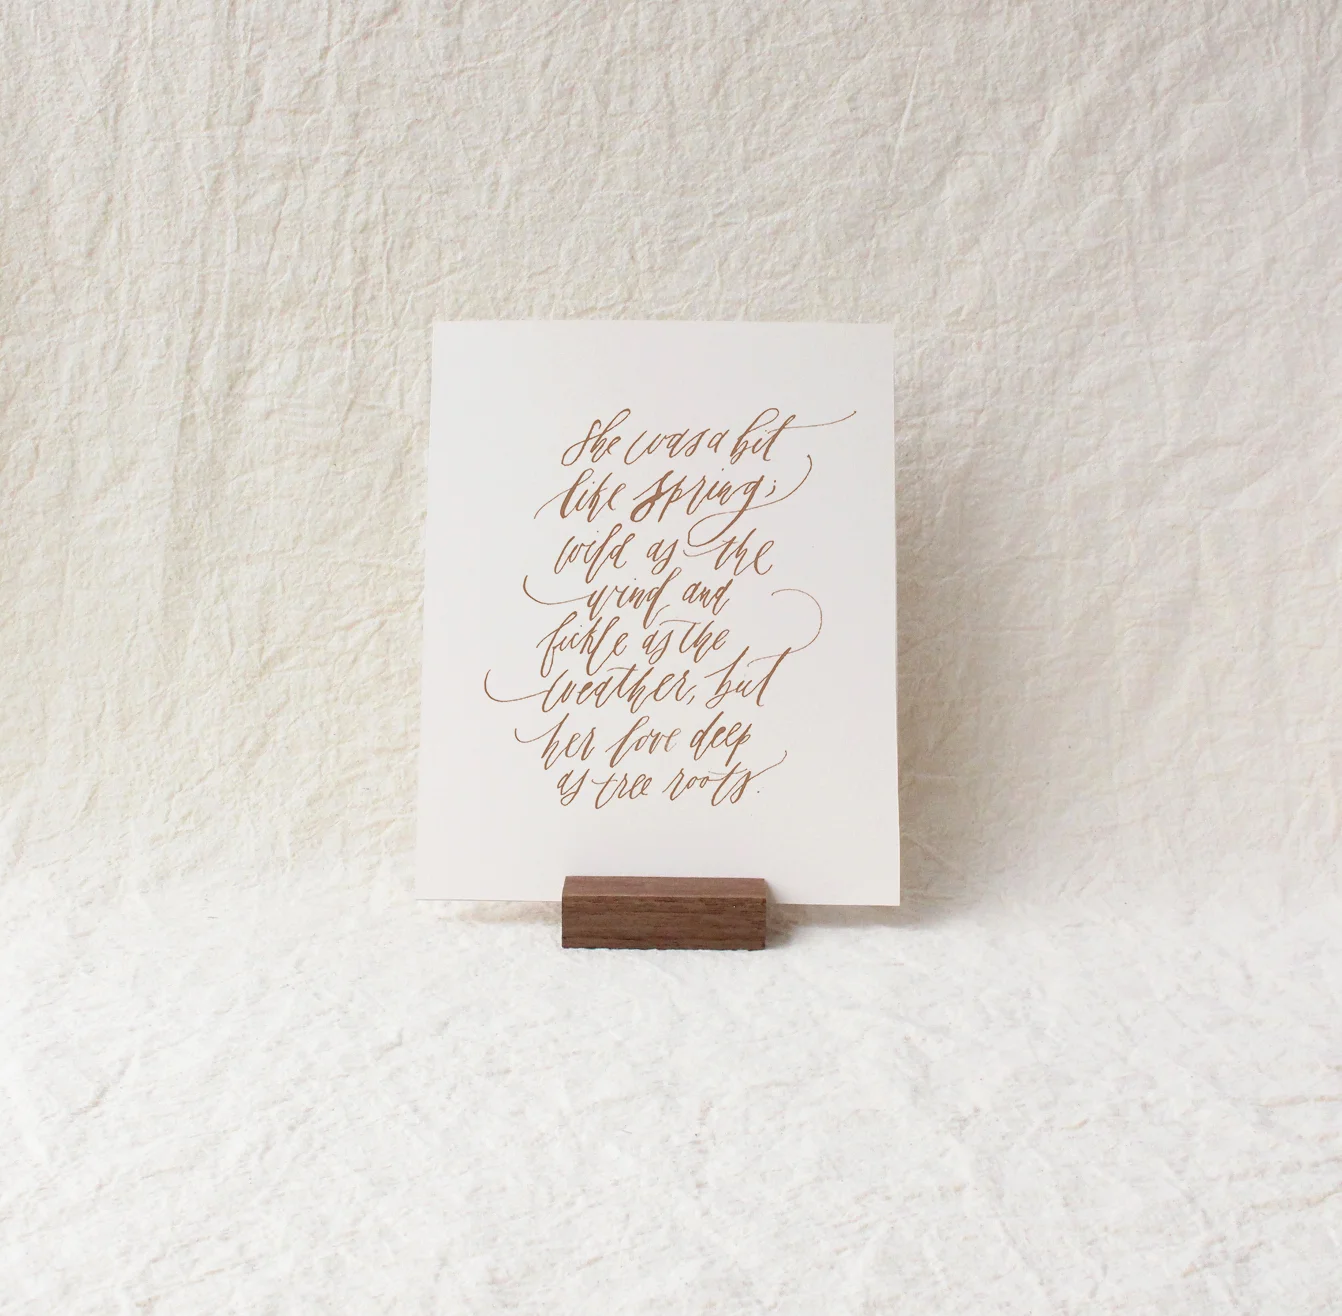 She was a bit
like Spring;
wild as the
wind and
fickle as the
weather, but
her love deep
as tree roots.